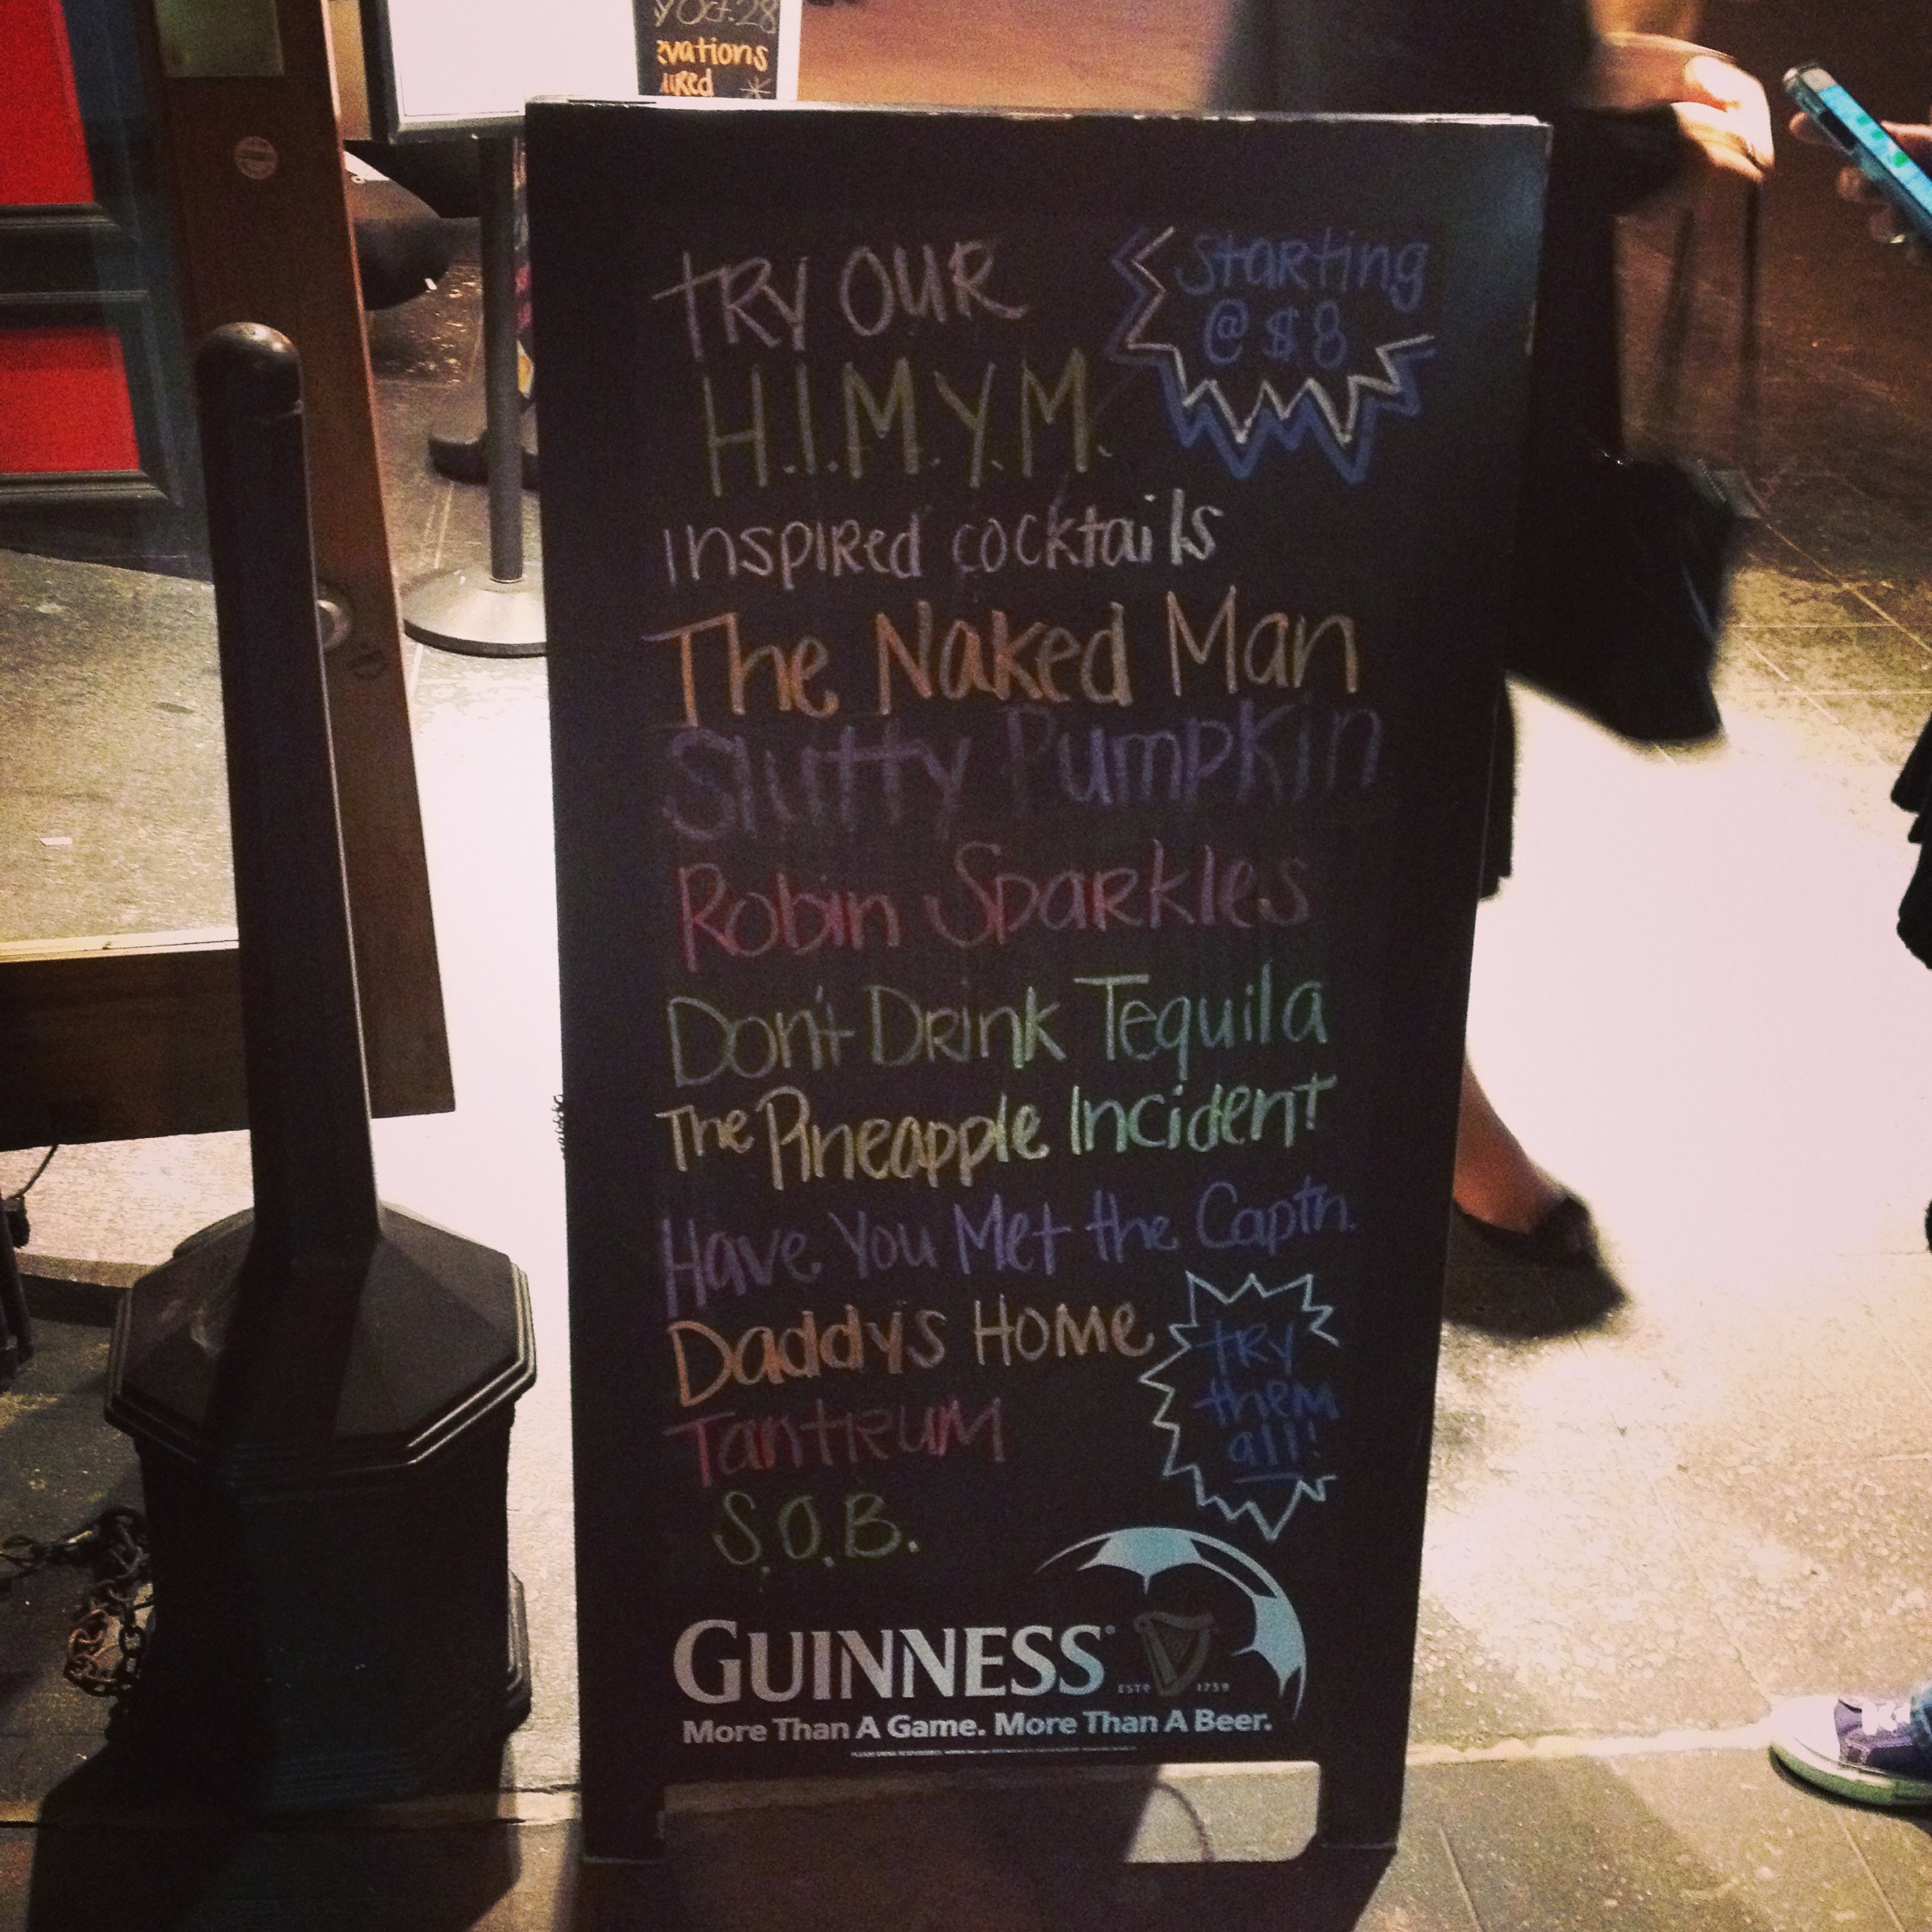 y Oct. 28
vations
ired
TRY OUR
H.I.M.Y.M.
Starting
@ $8
INSPIRed cocktails
The Naked Man
Slutty Pumpkin
Robin Sparkles
Don't Drink Tequila
The Pineapple Incident
Have You Met the Captn.
Daddy's Home
TantRum
S.O.B.
TRY
them
all!
GUINNESS®
ESTD 1759
More Than A Game. More Than A Beer.